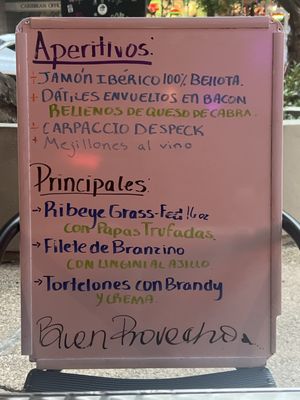 CARIBBEAN OFFI
Aperitivos:
÷ JAMÓN IBÉRICO 100% BELLOTA.
+ DÁTILES ENVUELTOS EN BACON
RELLENOS DE QUESO DE CABRA.
÷ CARPACCIO DE SPECK
+ Mejillones al vino
Principales:
→ Ribeye Grass-Fed 16 oz
con Papas Trufadas.
→ Filete de Branzino
CON LINGINI AL AJILLO
→ Tortelones con Brandy
Y CREMA.
Buen Provecho.